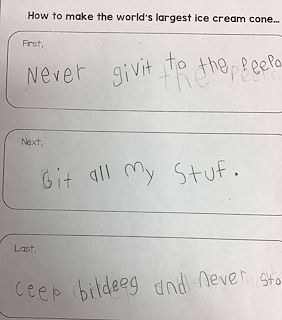 How to make the world's largest ice cream cone...
First,
Never givit to the peepo
Next,
Git all my stuf.
Last,
ceep bildeeg and never sto